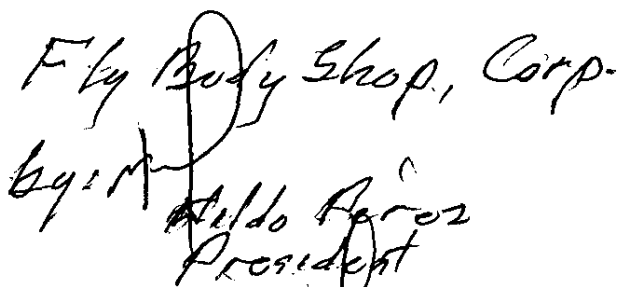 Fly Body Shop, Corp.
by:
Hildo Perez
President